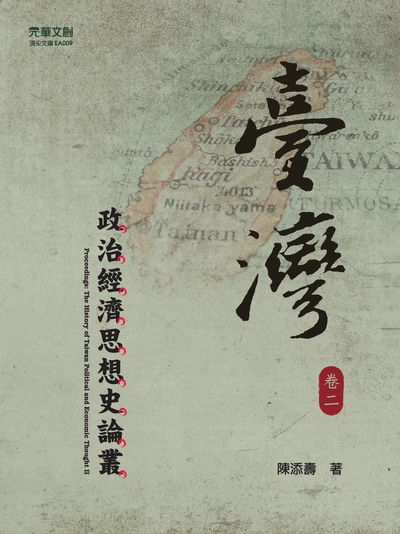 元華文創
頂尖文庫 EA009
臺灣
政治經濟思想史論叢
Proceedings: The History of Taiwan Political and Economic Thought II
卷二
陳添壽 著
Shinchiku
Shōka
Bashisho
Kagi
13013
Niitaka yama
Tainan
TAIWAN
FORMOSA